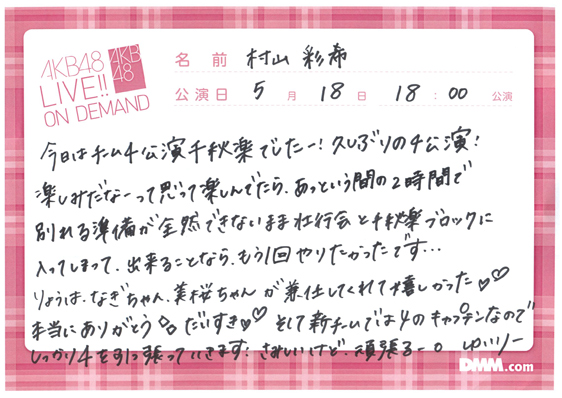 AKB48
LIVE!!
ON DEMAND
AKB
48
名前 村山彩希
公演日 5月18日 18:00 公演
今日はチーム4公演千秋楽でしたー!久しぶりの4公演!
楽しみだなーって思って楽しんでたら、あっという間の2時間で
別れる準備が全然できないまま壮行会と千秋楽ブロックに
入ってしまって、出来ることなら、もう1回やりたかったです…
りょうは、なぎちゃん、美桜ちゃんが兼任してくれて嬉しかった♡♡
本当にありがとう だいすき♡♡ そして新チームでは4のキャプテンなので
しっかり4を引っ張っていきます! さみしいけど、頑張るー。 ゆいりー
DMM.com